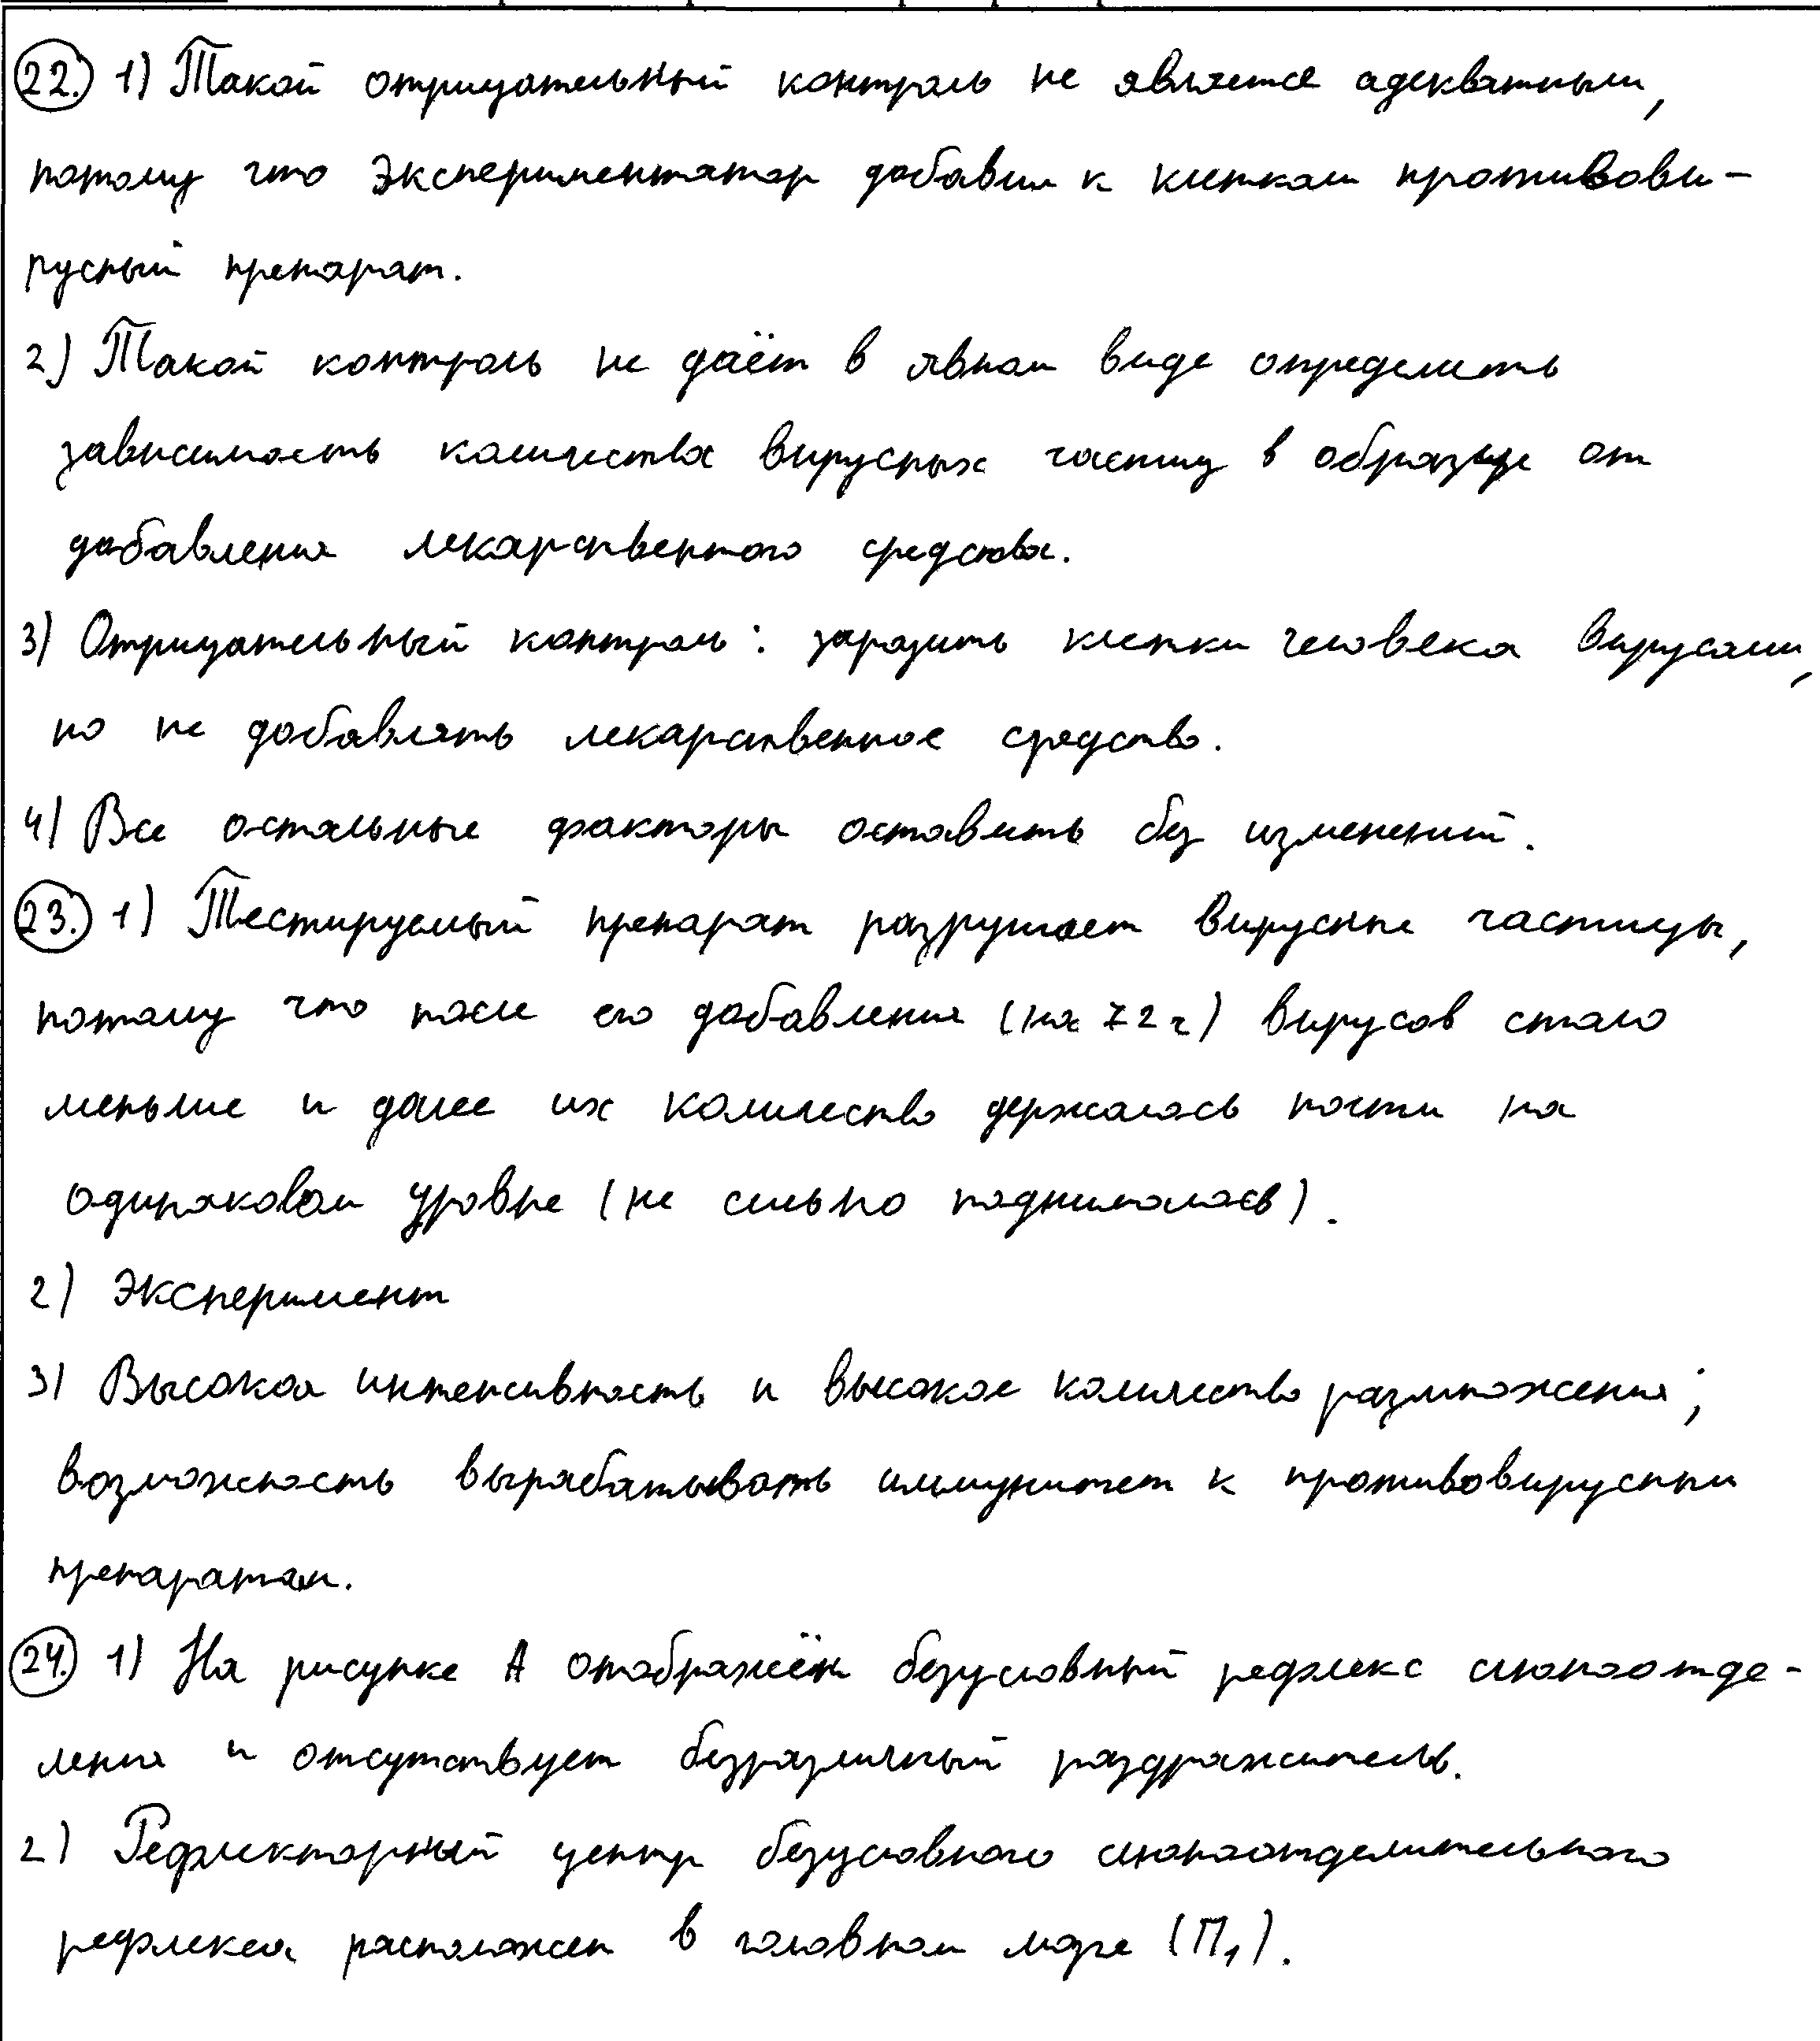 22. 1) Такой отрицательный контроль не является адекватным,
потому что экспериментатор добавил к клеткам противови-
русный препарат.
2) Такой контроль не даёт в явном виде определить
зависимость количества вирусных частиц в образце от
добавления лекарственного средства.
3) Отрицательный контроль: заразить клетки человека вирусами,
но не добавлять лекарственное средство.
4) Все остальные факторы оставить без изменений.
23. 1) Тестируемый препарат разрушает вирусные частицы,
потому что после его добавления (на 72 ч) вирусов стало
меньше и далее их количество держалось почти на
одинаковом уровне (не сильно поднималось).
2) Эксперимент
3) Высокая интенсивность и высокое количество размножения;
возможность вырабатывать иммунитет к противовирусным
препаратам.
24. 1) На рисунке А отображён безусловный рефлекс слюноотде-
ления и отсутствует безразличный раздражитель.
2) Рефлекторный центр безусловного слюноотделительного
рефлекса расположен в головном мозге (П1).